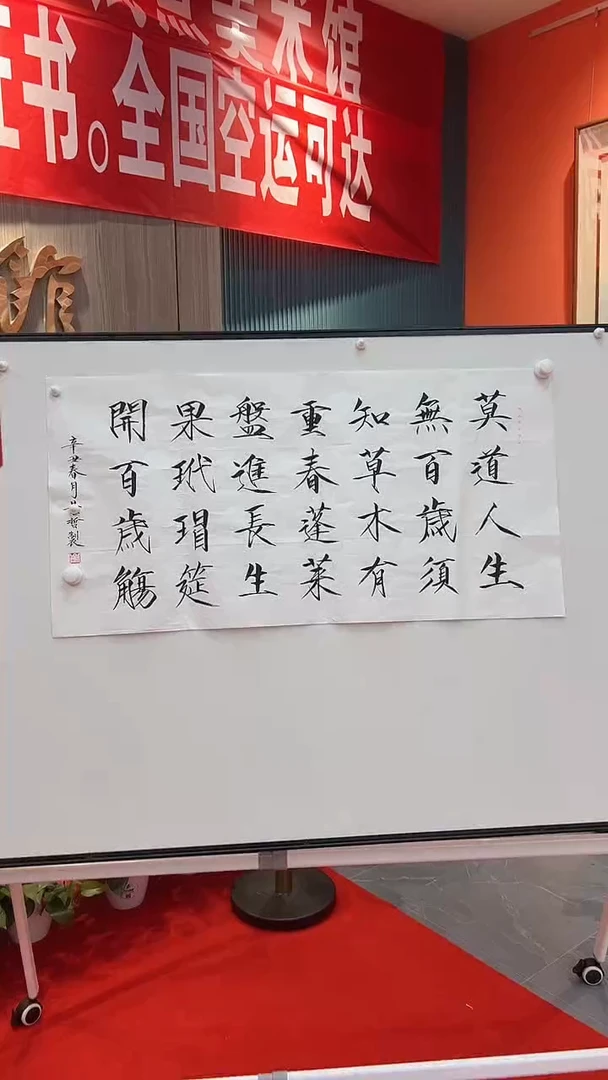 美术馆
书。全国空运可达
莫道人生
無百歲須
知草木有
重春蓬萊
盤進長生
果玳瑁筵
開百歲觴
辛丑春月
製